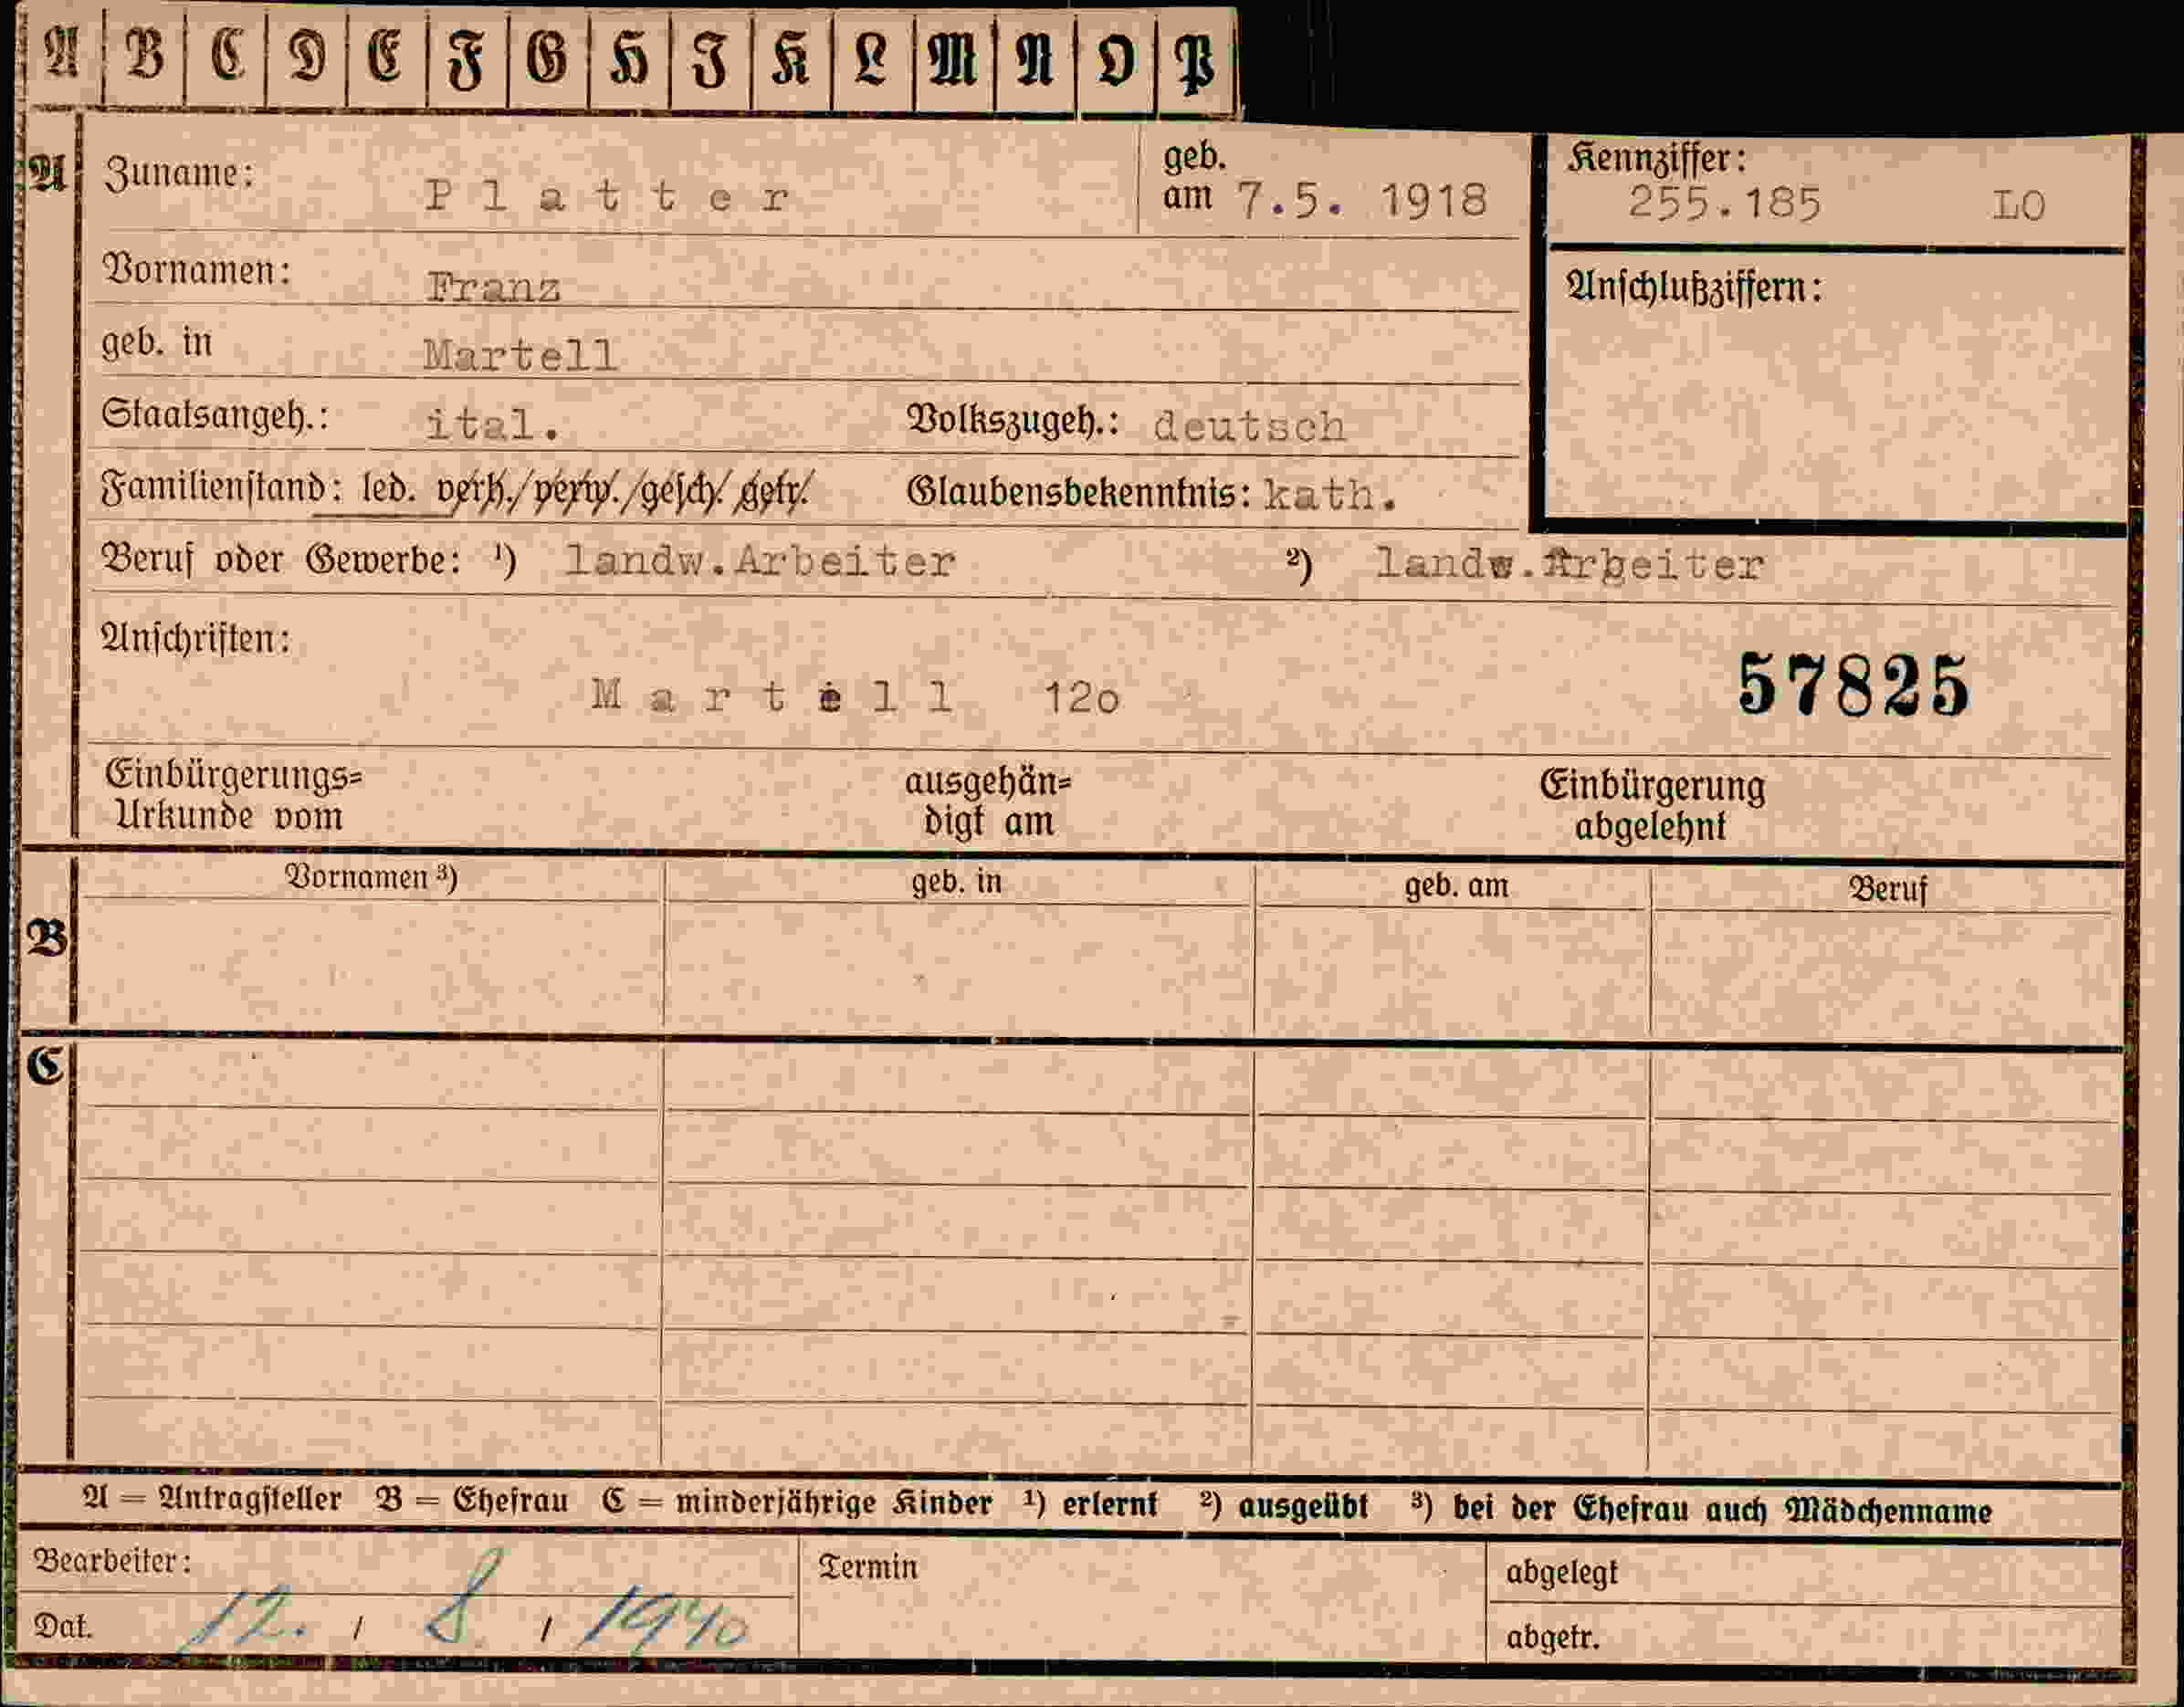 A B C D E F G H I K L M N O P
A Zuname: Platter geb. am 7.5. 1918 Kennziffer: 255.185 LO
Vornamen: Franz Anschlußziffern:
geb. in Martell
Staatsangeh.: ital. Volkszugeh.: deutsch
Familienstand: led. verh./verw./gesch/ getr/. Glaubensbekenntnis: kath.
Beruf oder Gewerbe: ¹) landw.Arbeiter ²) landw.Arbeiter
Anschriften:
Martell 12o 57825
Einbürgerungs= ausgehän= Einbürgerung
Urkunde vom digt am abgelehnt
Vornamen ³) geb. in geb. am Beruf
B
C
A = Antragsteller B = Ehefrau C = minderjährige Kinder ¹) erlernt ²) ausgeübt ³) bei der Ehefrau auch Mädchenname
Bearbeiter: Termin abgelegt
Dat. 12. / 8 / 1940 abgetr.